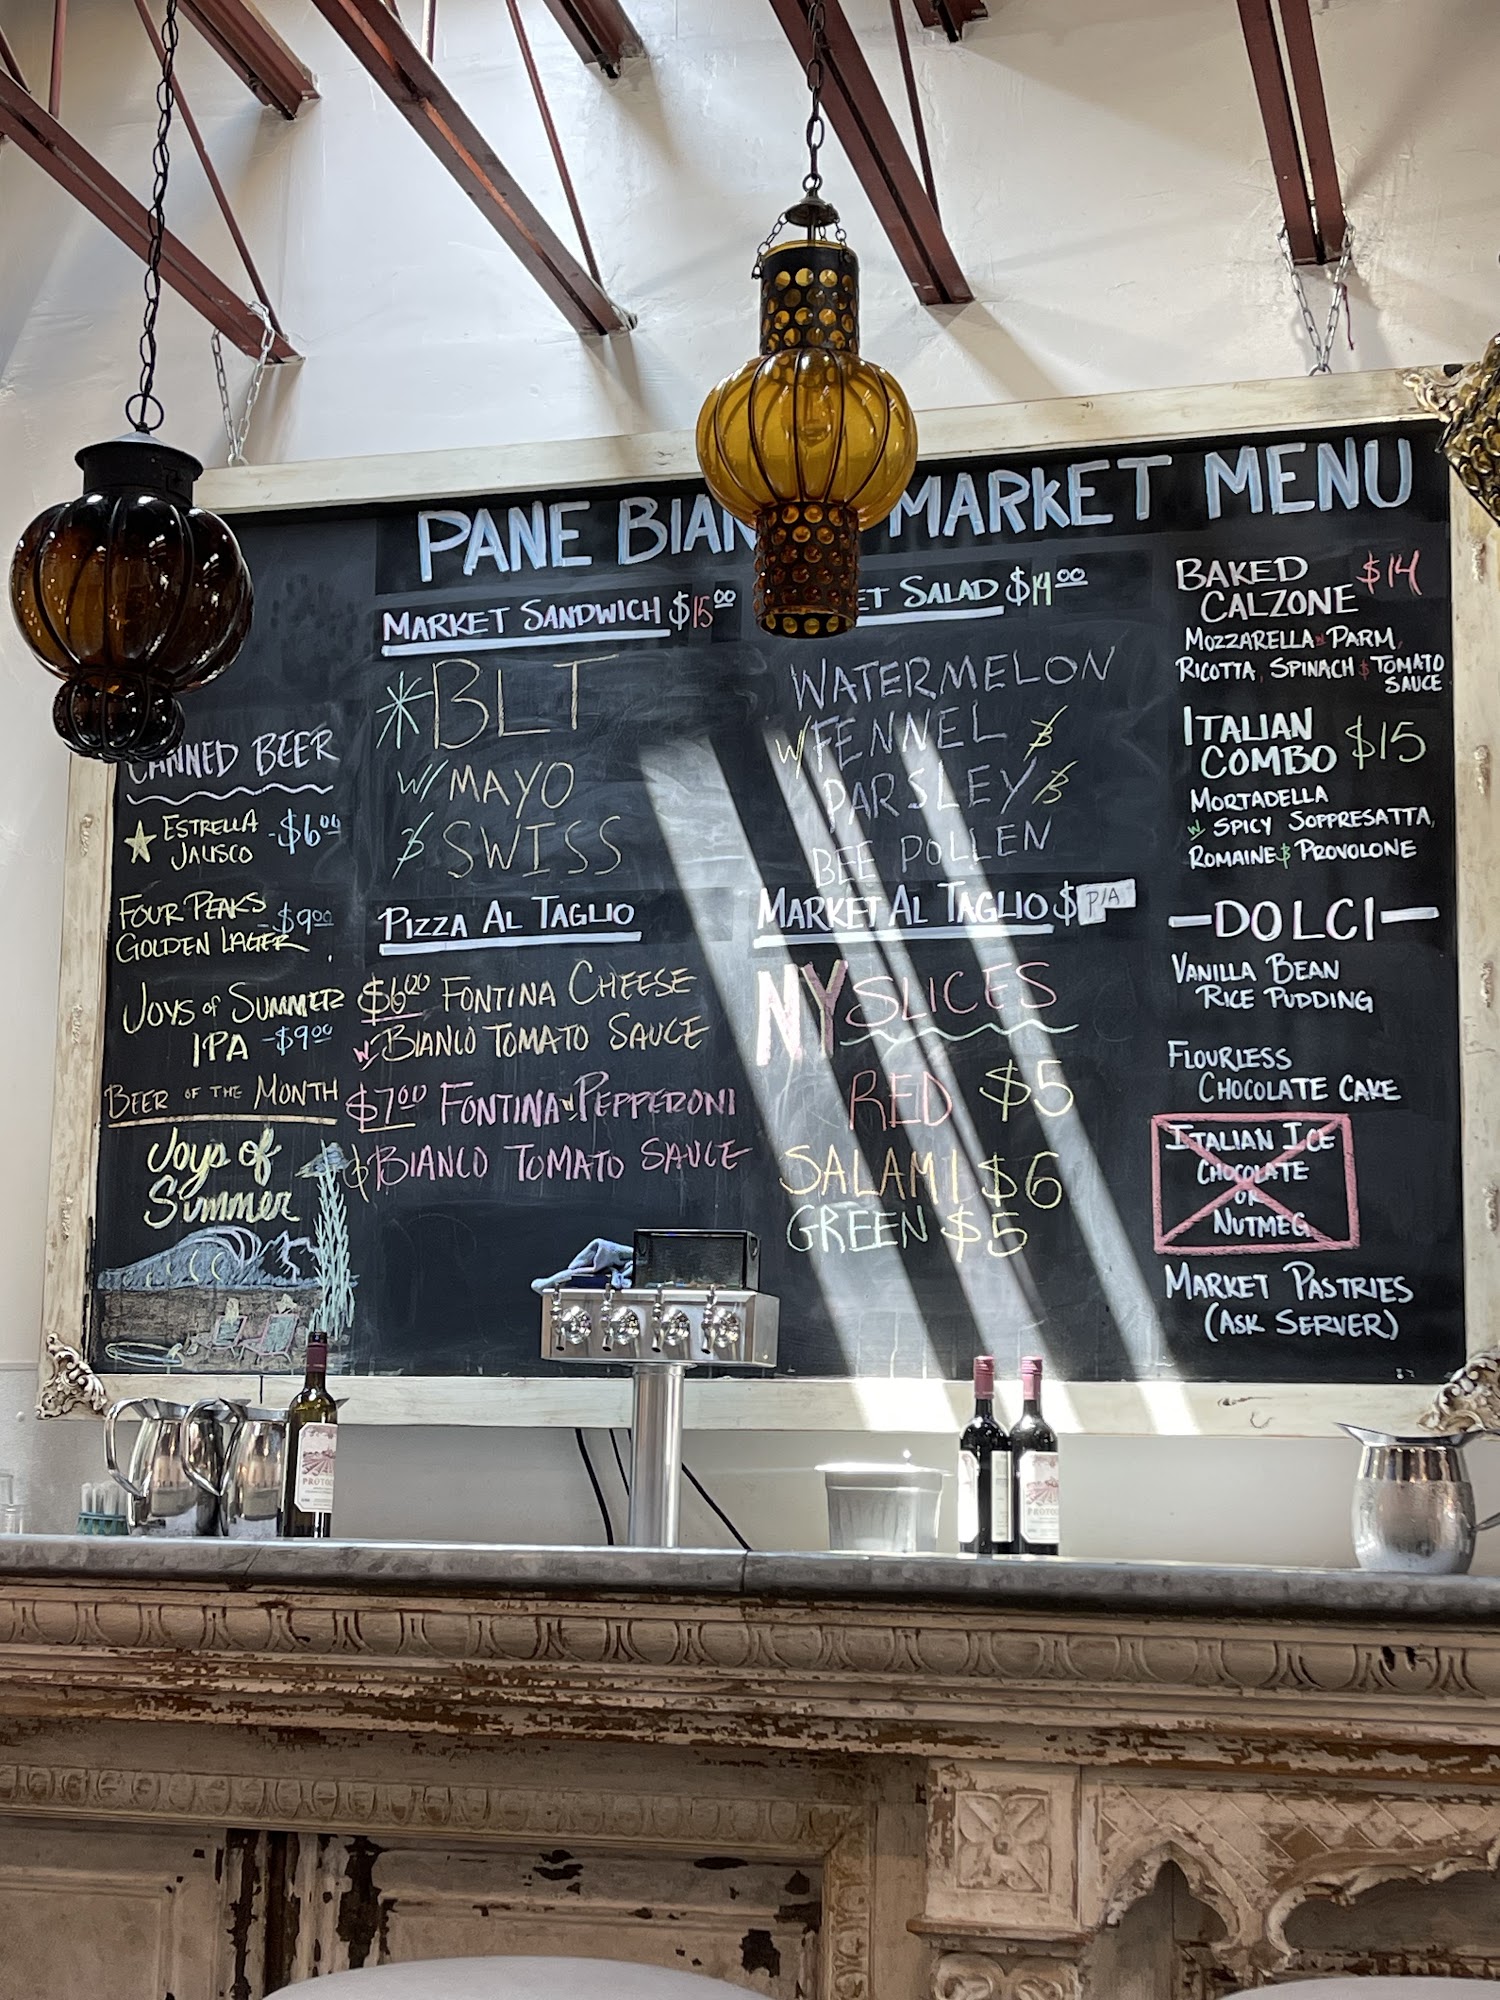 PANE BIAN MARKET MENU
CANNED BEER
ESTRELLA
JALISCO
-$6.00
FOUR PEAKS
GOLDEN LAGER
-$9.00
JOYS of SUMMER
IPA -$9.00
BEER OF THE MONTH
Joys of
Summer
MARKET SANDWICH $15.00
*BLT
W/ MAYO
& SWISS
PIZZA AL TAGLIO
$6.00 FONTINA CHEESE
W/ BIANCO TOMATO SAUCE
$7.00 FONTINA W/ PEPPERONI
& BIANCO TOMATO SAUCE
ET SALAD $14.00
WATERMELON
W/ FENNEL &
PARSLEY &
BEE POLLEN
MARKET AL TAGLIO $ P/A
NY SLICES
RED $5
SALAMI $6
GREEN $5
BAKED
CALZONE
$14
MOZZARELLA, PARM,
RICOTTA, SPINACH & TOMATO
SAUCE
ITALIAN
COMBO
$15
MORTADELLA
W/ SPICY SOPPRESATTA,
ROMAINE & PROVOLONE
DOLCI
VANILLA BEAN
RICE PUDDING
FLOURLESS
CHOCOLATE CAKE
ITALIAN ICE
CHOCOLATE
OR
NUTMEG
MARKET PASTRIES
(ASK SERVER)